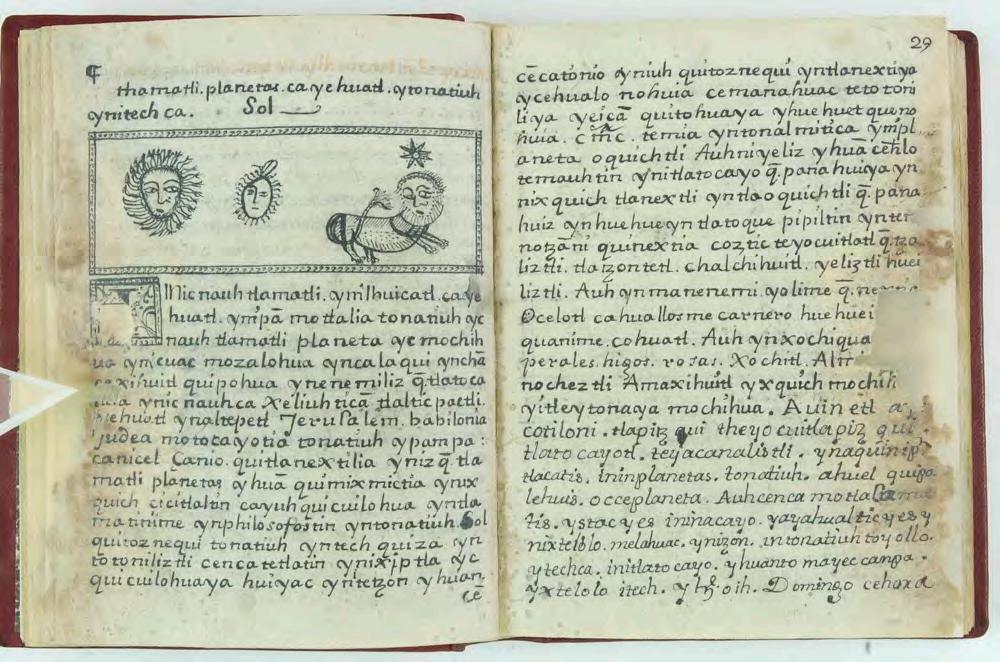 thamatli. planetas. ca ye huatl. y tonatiuh
ynitech ca. Sol
Inic nauh tlamatli. ym ilhuicatl. ca ye
huatl. ympã motlalia tonatiuh yc
nauh tlamatli planeta yc mochih
ua ynicuac mozalohua yncala qui ynchã
xihuitl quipohua ynenemiliz q̃. tlatoca
ynic nauhca Xeliuhticã tlaltic pactli.
ynaltepetl Jerusalem. babilonia
Judea motocayotia tonatiuh ypampa :
canicel Canio. quitlanextilia yniz q̃. tla
matli planetas yhua quimixmictia ynix
quich cicitlaltin ca yuh qui cuilo hua yntla
matinime ynphilosofostin yntonatiuh. Sol
quitoznequi tonatiuh yntech quiza yn
totoniliztli cenca tetlatin ynixiptla yc
qui cuilohuaya huiyac ynitetzon yhuan
cē
29
cē catonio yniuh quitoznequi yntlanextiya
ycehualo nohuia cemanahuac tetotoni
liya yeicã quitohuaya yhuehuetque no
huia. temia yntonalmitica ympl
aneta oquichtli Auh niyeliz yhuã
temauhtin ynitlatocayo q̃. panahuiya yn
nixquich tlanextli yntlaoquichtli q̃. pana
huiz yn huehueyn tlatoque pipiltin ynter
notzãni quinextia coztic teyocuitlatl
liztli. tlatzontetl. chalchihuitl. yeliztli huei
liztli. Auh ynmanenemi. yolime
Ocelotl cahuallosme carnero huehuei
quanime. cohuatl. Auh ynixochiqua
perales. higos. rosas. Xochitl.
nocheztli Amaxihuitl yxquich mochihi
yitleytonaya mochihua. Auin etl
cotiloni. tlapitz qui theyocuitlapitz qui.
tlatocayotl. teyacanalistli. ynaquin
tlacatis. ininplanetas. tonatiuh. ahuel quipa
lehuis. occeplaneta. Auhcenca motla
tis. ystac yes ininacayo. yayahualtic yes y
nixtelolo. melahuac. ynizon. intonatiuh toyollo.
ytechca. initlatocayo. yhuanto mayeccanpa.
yxtelolo itech. oih. Domingo cehora